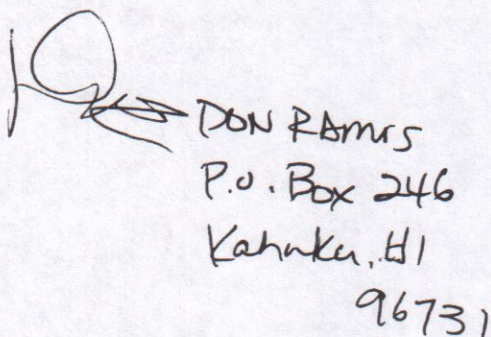 DON RAMIS
P.O. Box 246
Kahuku, HI
96731